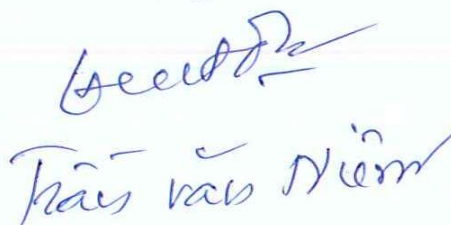 Trần Văn Niêm